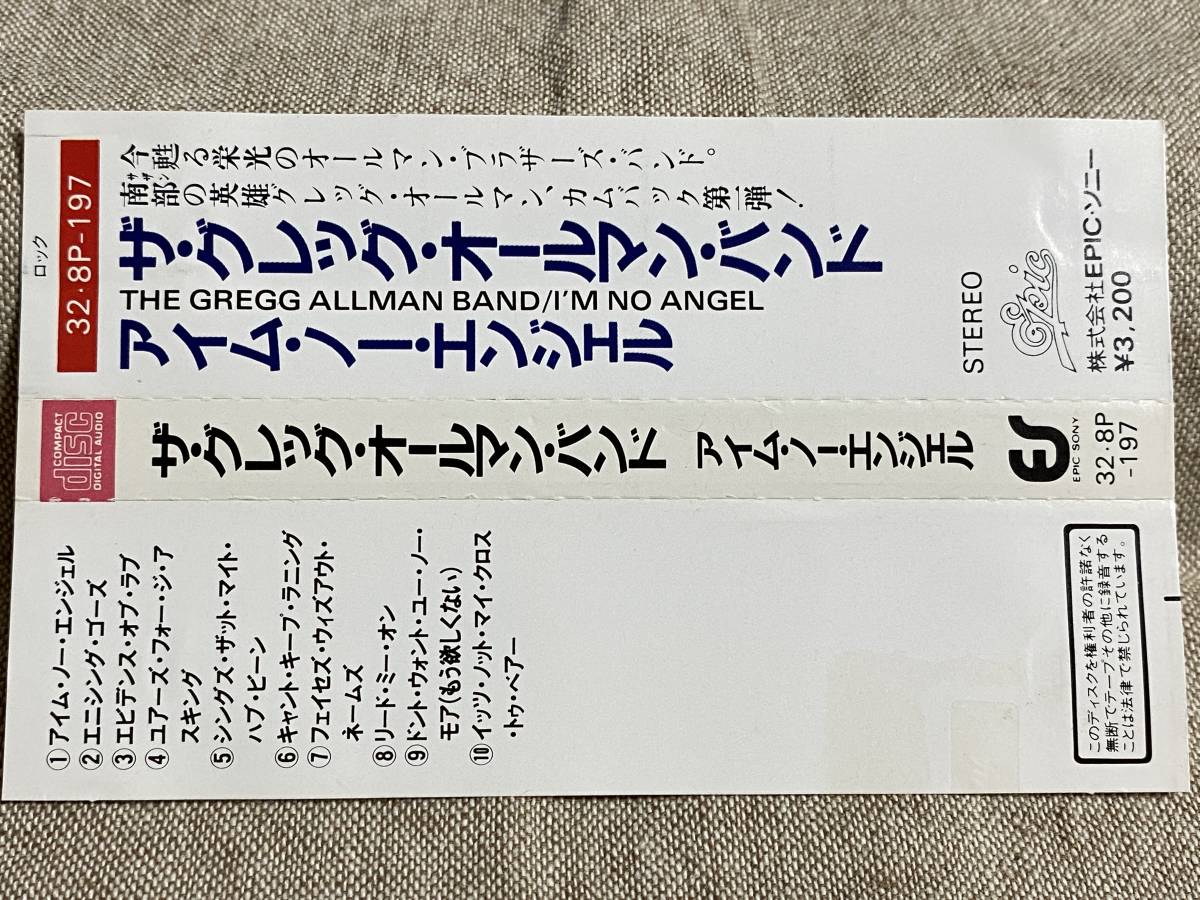 ロック
32・8P-197
今甦る栄光のオールマン・ブラザーズ・バンド。
南部の英雄グレッグ・オールマン、カムバック第一弾!
サザン
ザ・グレッグ・オールマン・バンド
THE GREGG ALLMAN BAND/I'M NO ANGEL
アイム・ノー・エンジェル
STEREO
Epic
株式会社EPIC・ソニー
¥3,200
COMPACT
disc
DIGITAL AUDIO
ザ・グレッグ・オールマン・バンド アイム・ノー・エンジェル
ES
EPIC SONY
32・8P
-197
①アイム・ノー・エンジェル
②エニシング・ゴーズ
③エビデンス・オブ・ラブ
④ユアーズ・フォー・ジ・ア
スキング
⑤シングズ・ザット・マイト・
ハブ・ビーン
⑥キャント・キープ・ラニング
⑦フェイセズ・ウィズアウト・
ネームズ
⑧リード・ミー・オン
⑨ドント・ウォント・ユー・ノー・
モア(もう欲しくない)
⑩イッツ・ノット・マイ・クロス
・トゥ・ベアー
このディスクを権利者の許諾なく
無断でテープその他に録音する
ことは法律で禁じられています。